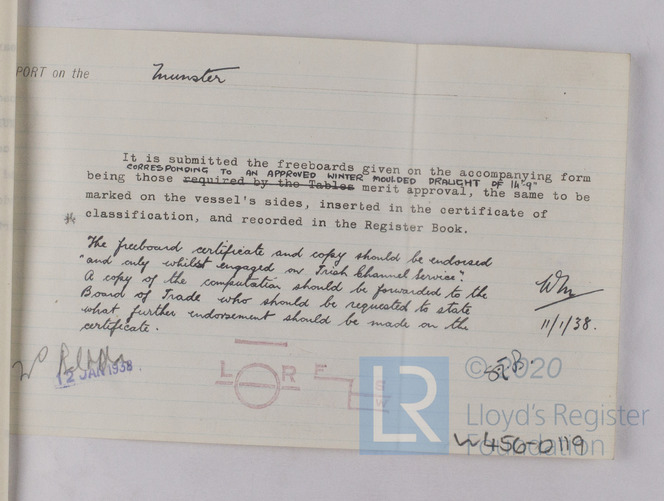 PORT on the Munster
It is submitted the freeboards given on the accompanying form
CORRESPONDING TO AN APPROVED WINTER MOULDED DRAUGHT OF 14'-9"
being those required by the Tables merit approval, the same to be
marked on the vessel's sides, inserted in the certificate of
* classification, and recorded in the Register Book.
The freeboard certificate and copy should be endorsed
"and only whilst engaged on Irish Channel Service".
A copy of the computation should be forwarded to the
Board of Trade who should be requested to state
what further endorsement should be made on the
certificate.
11/1/38.
12 JAN 1938
L R F
S
W
© 2020
Lloyd's Register
Foundation
W456-0119
LR